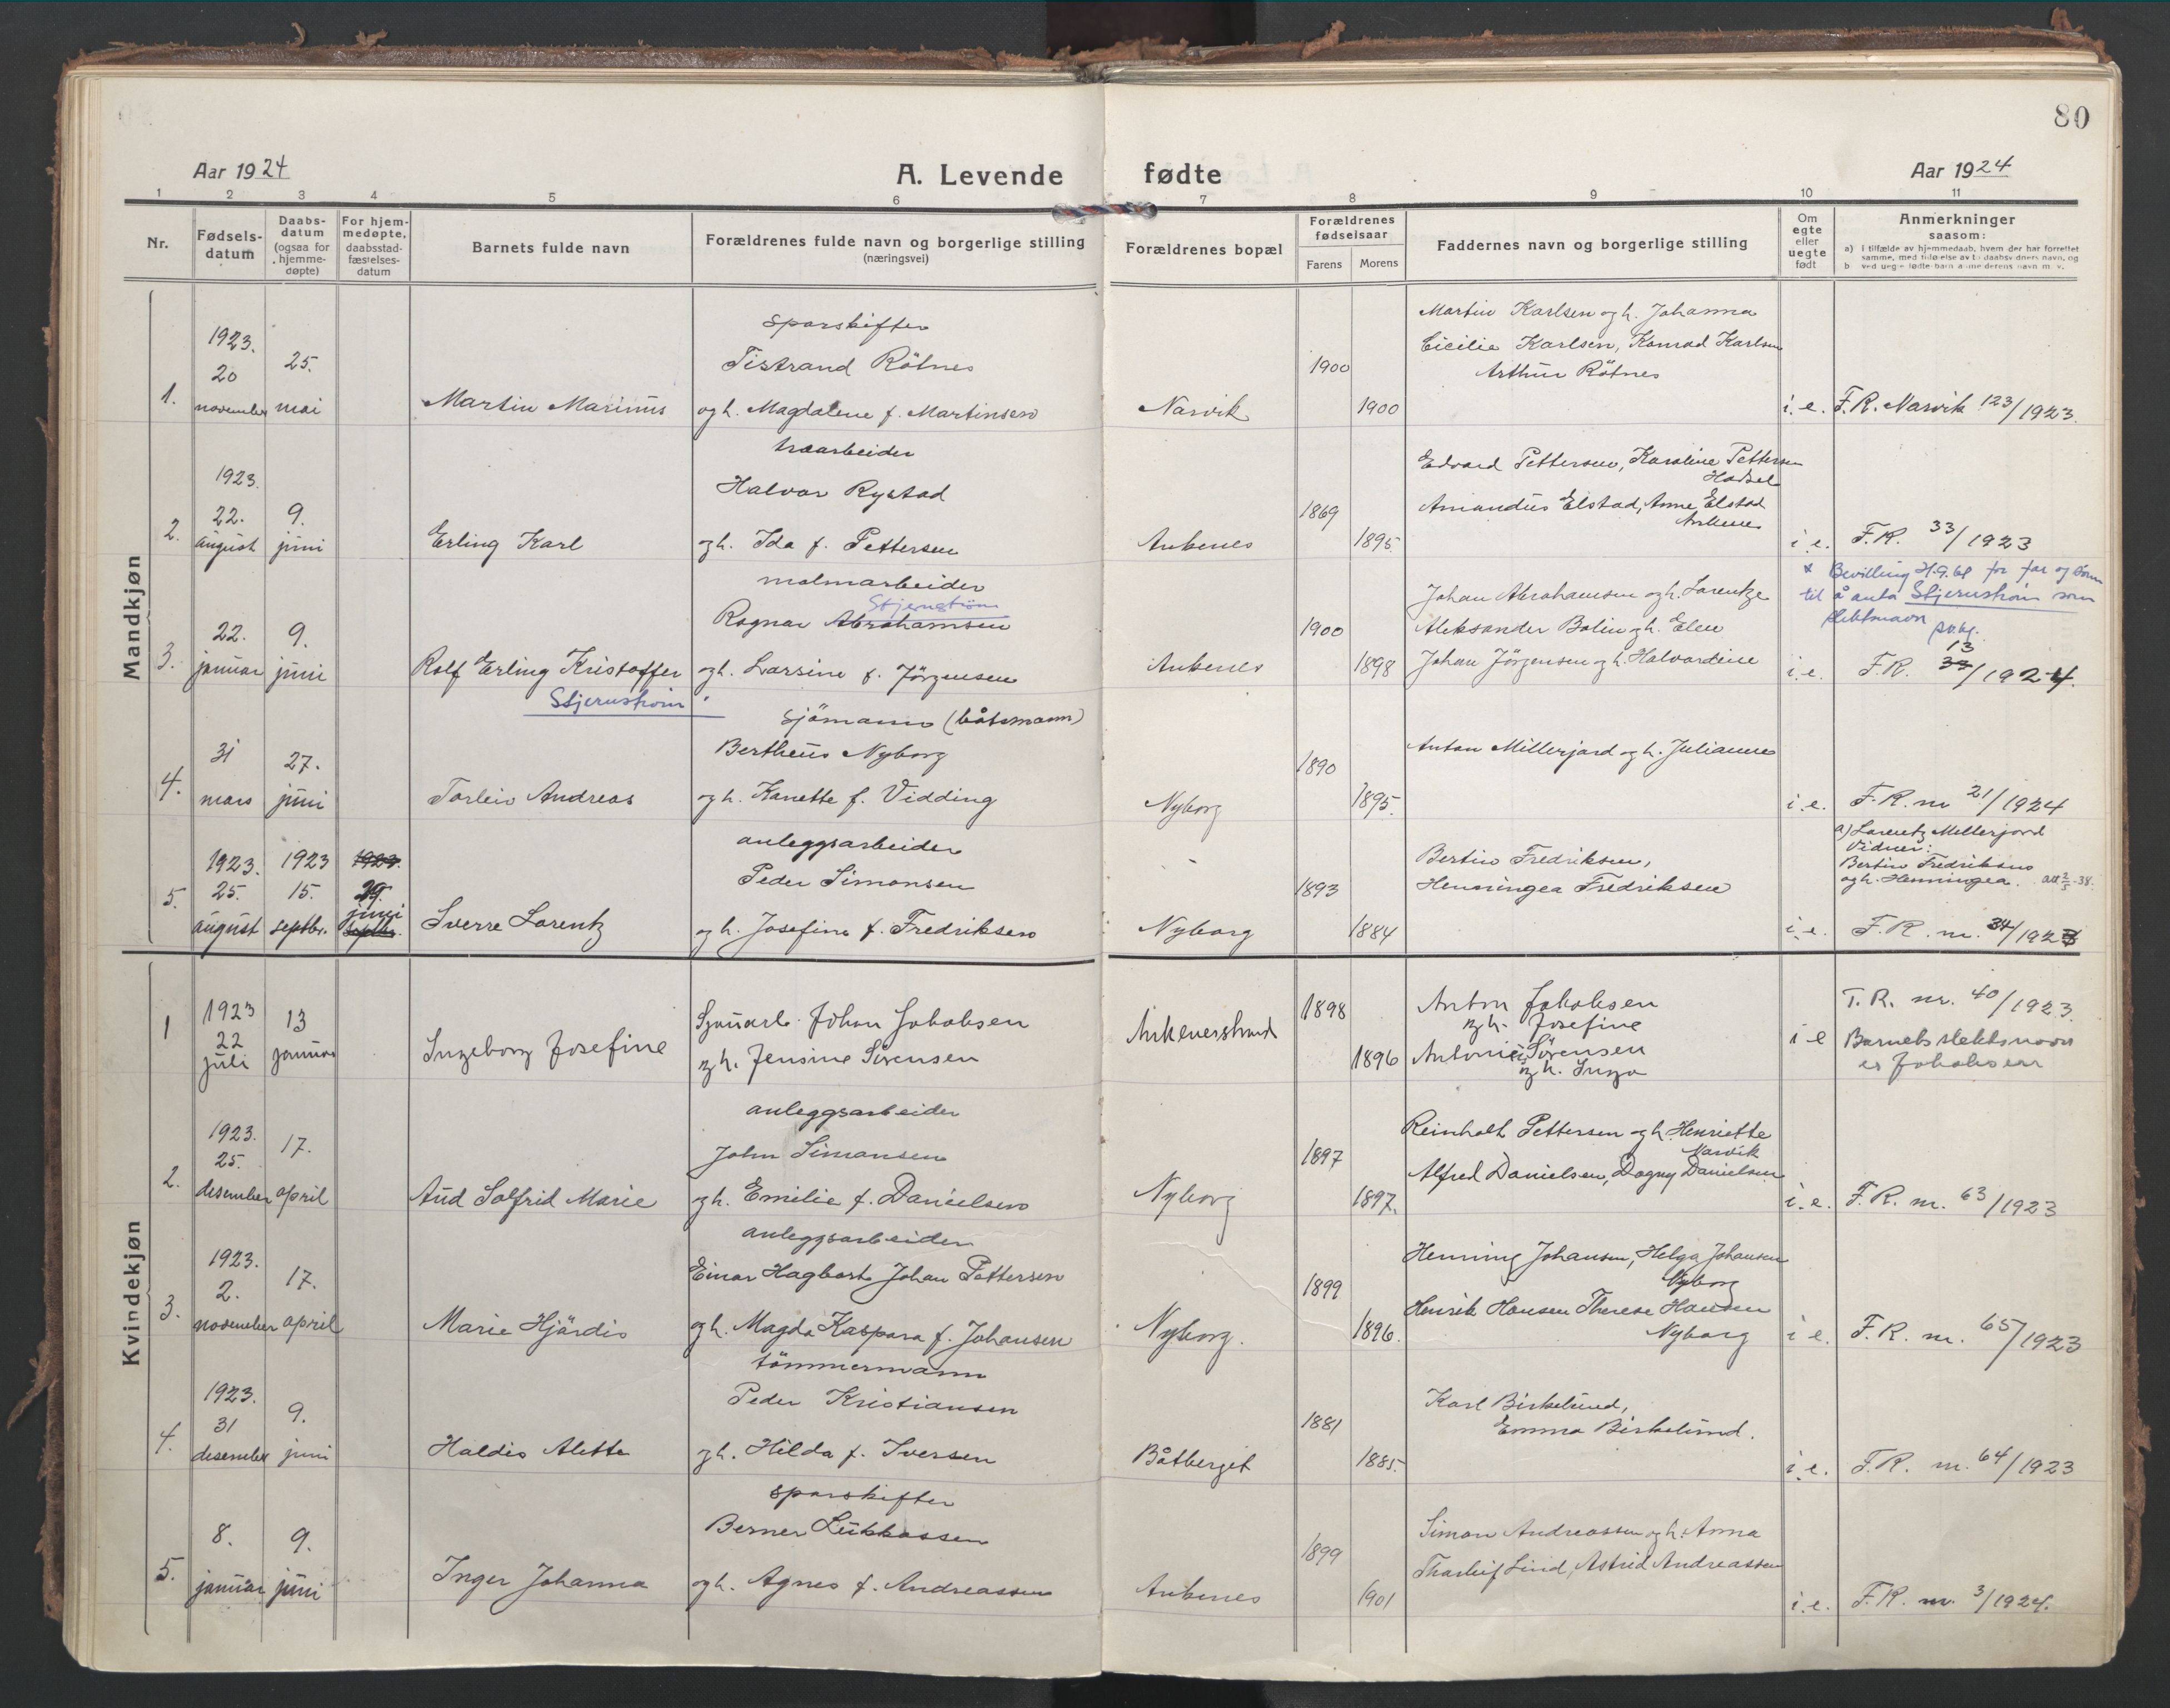 80
Aar 1924
A. Levende fødte
Aar 1924
1 2 3 4 5 6 7 8 9 10 11
Nr.
Fødsels-
datum
Daabs-
datum
(ogsaa for
hjemme-
døpte)
For hjem-
medøpte,
daabsstad-
fæstelses-
datum
Barnets fulde navn
Forældrenes fulde navn og borgerlige stilling
(næringsvei)
Forældrenes bopæl
Forældrenes
fødselsaar
Farens
Morens
Faddernes navn og borgerlige stilling
Om
egte
eller
uegte
født
Anmerkninger
saasom:
a) I tilfælde av hjemmedaab, hvem der har forrettet
samme, med tilføielse av to daabsvidners navn, og
b ved uegte fødte barn anmelderens navn m. v.
Mandkjøn
1.
1923.
20
november
25.
mai
Martin Marinus
sporskifter
Tistrand Rötnes
og h. Magdalene f. Martinsen
Narvik
1900
1900
Martin Karlsen og h. Johanna
Cicilie Karlsen, Konrad Karlsen
Arthur Rötnes
i.e.
F.R. Narvik 123/1923.
2.
1923.
22.
august
9.
juni
Erling Karl
træarbeider
Halvor Rystad
og h. Ida f. Pettersen
Ankenes
1869
1895.
Edvard Pettersen, Karoline Pettersen
Hadsel
Amandus Elstad, Anne Elstad
Ankenes
i.e.
F.R. 33/1923
3.
22.
januar
9.
juni
Rolf Erling Kristoffer
Stjernström
malmarbeider
Stjernström
Ragnar Abrahamsen
og h. Larsine f. Jörgensen
Ankenes
1900
1898
Johan Abrahamsen og h. Lorentze
Aleksander Bolin og h. Elen
Johan Jörgensen og h. Halvardine
x Bevilling 24.9.61 for far og sönn
til å anta Stjernström som
slektsnavn
i.e.
F.R. 13/1924.
4.
31
mars
27.
juni
Torleiv Andreas
sjömann (båtsmann)
Bertheus Nyborg
og h. Kanette f. Vidding
Nyborg
1890
1895.
Anton Millerjord og h. Julianne
i.e.
F.R. nr 21/1924
5.
1923.
25.
august
1923
15.
septbr.
1923.
29.
juni
septbr.
Sverre Lorentz
anleggsarbeider
Peder Simonsen
og h. Josefine f. Fredriksen
Nyborg
1893
1884
Bertin Fredriksen,
Henningea Fredriksen
i.e.
a) Lorentz Millerjord
Vidner:
Bertin Fredriksen
og h. Henningea. att 2/5-38.
F.R. nr. 34/1923
Kvindekjøn
1
1923
22
juli
13
januar
Ingeborg Josefine
Sjauarb. Johan Jakobsen
og h. Jensine Sörensen
Ankenesstrand
1898
1896
Anton Jakobsen
og h. Josefine
Antonius Sörensen
og h. Inga
i e
F.R. nr. 40/1923.
Barnets slektsnavn
er Jakobsen
2.
1923.
25.
desember
17.
april
Aud Solfrid Marie
anleggsarbeider
John Simonsen
og h. Emilie f. Danielsen
Nyborg
1897
1897.
Reinholt Pettersen og h. Henriette
Narvik
Alfred Danielsen, Dagny Danielsen
i.e.
F.R. nr. 63/1923
3.
1923.
2.
november
17.
april
Marie Hjärdis
anleggsarbeider
Einar Hagbart Johan Pettersen
og h. Magda Kaspara f. Johansen
Nyborg.
1899
1896.
Henning Johansen, Helga Johansen
Nyborg
Henrik Hansen Therese Hansen
Nyborg
i e.
F.R. nr. 65/1923
4.
1923.
31
desember
9.
juni
Haldis Alette
tömmermann
Peder Kristiansen
og h. Hilda f. Iversen
Båtberget
1881
1885.
Karl Birkelund,
Emma Birkelund.
i.e.
F.R. nr. 64/1923
5.
8.
januar
9.
juni
Inger Johanna
sporskifter
Berner Lukkassen
og h. Agnes f. Andreassen
Ankenes
1899
1901
Simon Andreassen og h. Anna
Tharleif Lind, Astrid Andreassen
i.e.
F.R. nr. 3/1924.